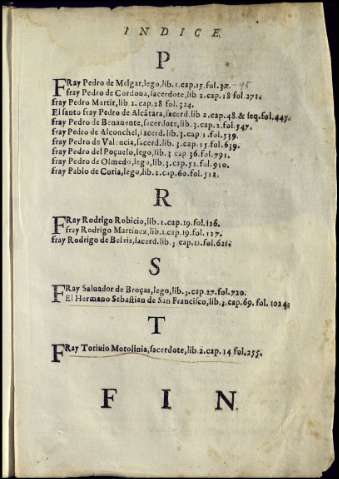 INDICE.
P
FRay Pedro de Melgar, lego, lib. 1. cap. 15. fol. 92.
fray Pedro de Cordoua, sacerdote, lib 2. cap. 18 fol. 271.
fray Pedro Martir, lib 2. cap. 28 fol. 324.
El santo fray Pedro de Alcátara, sacerd. lib 2. cap. 48. & seq. fol. 445.
fray Pedro de Benauente, sacerdote, lib 3. cap. 2. fol. 547.
fray Pedro de Alconchel, sacerd. lib 3. cap 1. fol. 539.
fray Pedro de Valécia, sacerd. lib 3. cap. 15 fol. 639.
fray Pedro del Poçuelo, lego, lib 3 cap 36. fol. 791.
fray Pedro de Olmedo, lego, lib. 3. cap. 51. fol. 910.
fray Pablo de Coria, lego, lib. 2. cap. 60. fol. 512.
R
FRay Rodrigo Robicio, lib. 1. cap. 19. fol. 126.
fray Rodrigo Martinez, lib 1. cap. 19. fol. 127.
fray Rodrigo de sacerd. lib 3 cap 11. fol. 621.
S
FRay Saluador de Broças, lego, lib. 3. cap. 27. fol. 720.
El Hermano Sebastian de San Francisco, lib. 3. cap. 69. fol. 1024.
T
FRay Toriuio Motolinia, sacerdote, lib. 2. cap. 14 fol. 255.
FIN.